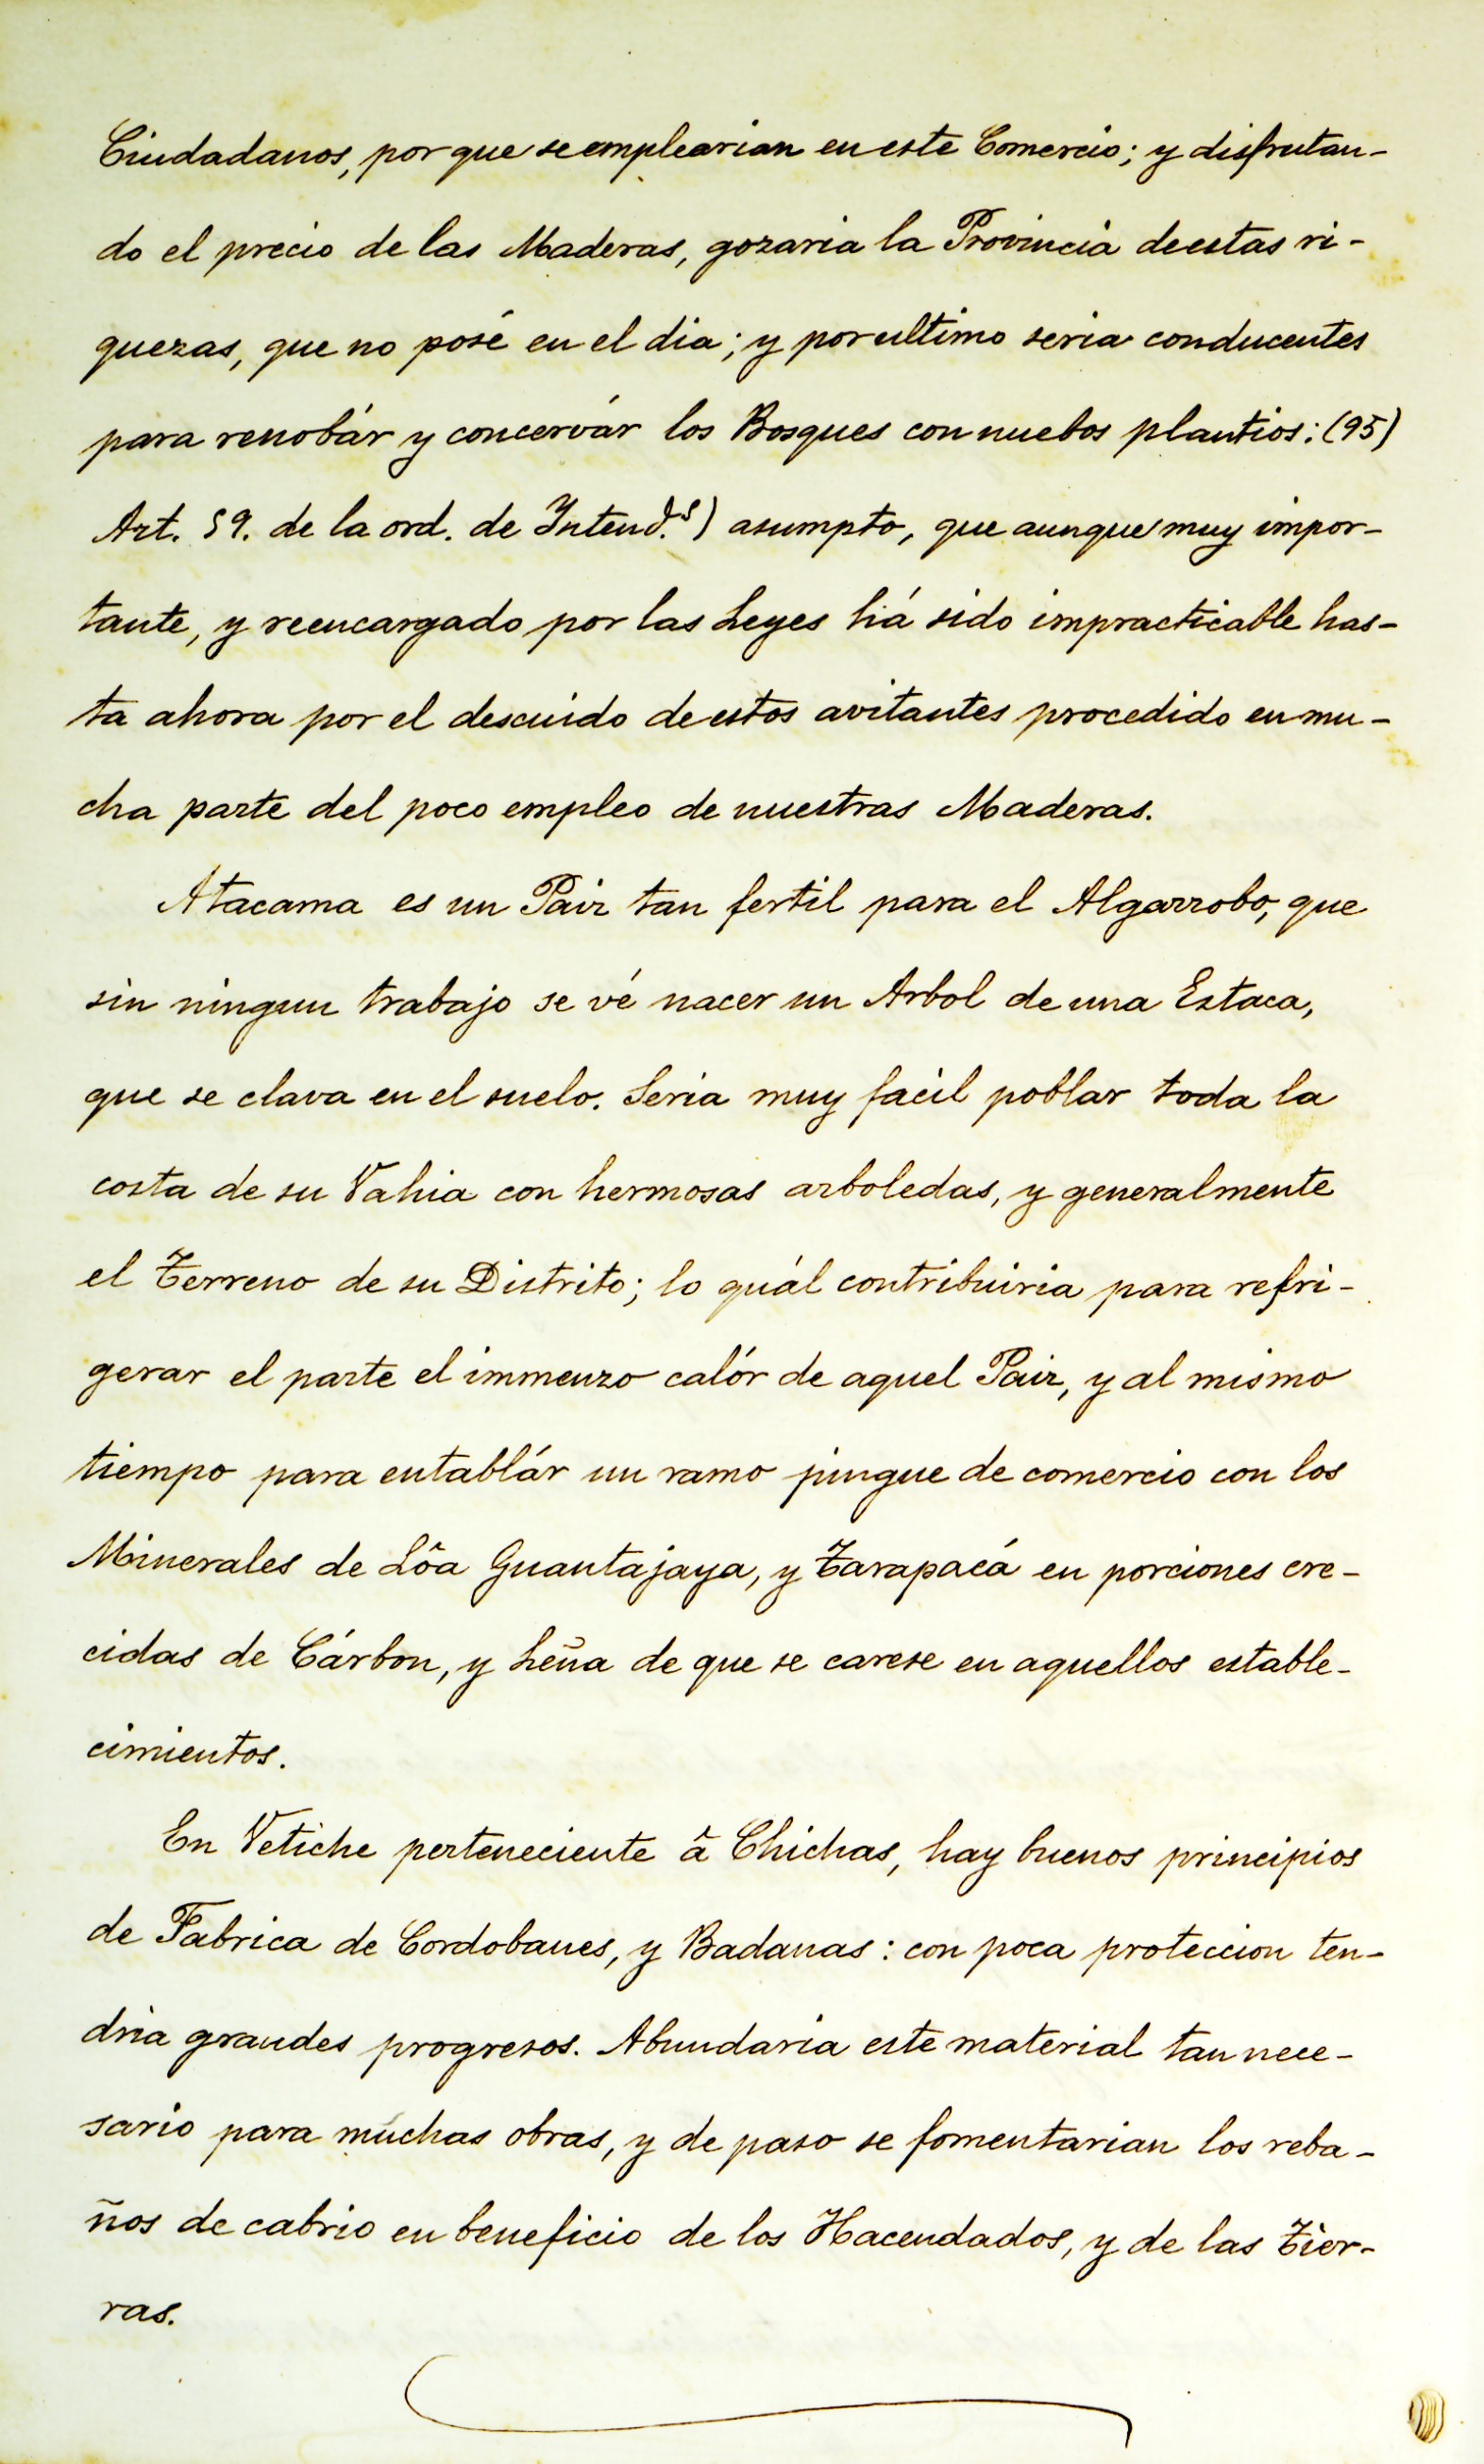 Ciudadanos, por que se emplearian en este Comercio; y disfrutan-
do el precio de las Maderas, gozaria la Provincia de estas ri-
quezas, que no posé en el dia; y por ultimo seria conducentes
para renobár y concervár los Bosques con nuebos plantios: (95)
Art. 59. de la ord. de Intend.s) asumpto, que aunque muy impor-
tante, y reencargado por las Leyes há sido impracticable has-
ta ahora por el descuido de estos avitantes procedido en mu-
cha parte del poco empleo de nuestras Maderas.
Atacama es un Paiz tan fertil para el Algarrobo, que
sin ningun trabajo se vé nacer un Arbol de una Estaca,
que se clava en el suelo. Seria muy facil poblar toda la
costa de su Vahia con hermosas arboledas, y generalmente
el Terreno de su Distrito; lo quál contribuiria para refri-
gerar el parte el immenzo calór de aquel Paiz, y al mismo
tiempo para entablár un ramo pingue de comercio con los
Minerales de Lôa Guantajaya, y Tarapacá en porciones cre-
cidas de Cárbon, y Leña de que se carese en aquellos estable-
cimientos.
En Vetiche perteneciente â Chichas, hay buenos principios
de Fabrica de Cordobanes, y Badanas: con poca proteccion ten-
dria grandes progresos. Abundaria este material tan nece-
sario para muchas obras, y de paso se fomentarian los reba-
ños de cabrio en beneficio de los Hacendados, y de las Tier-
ras.